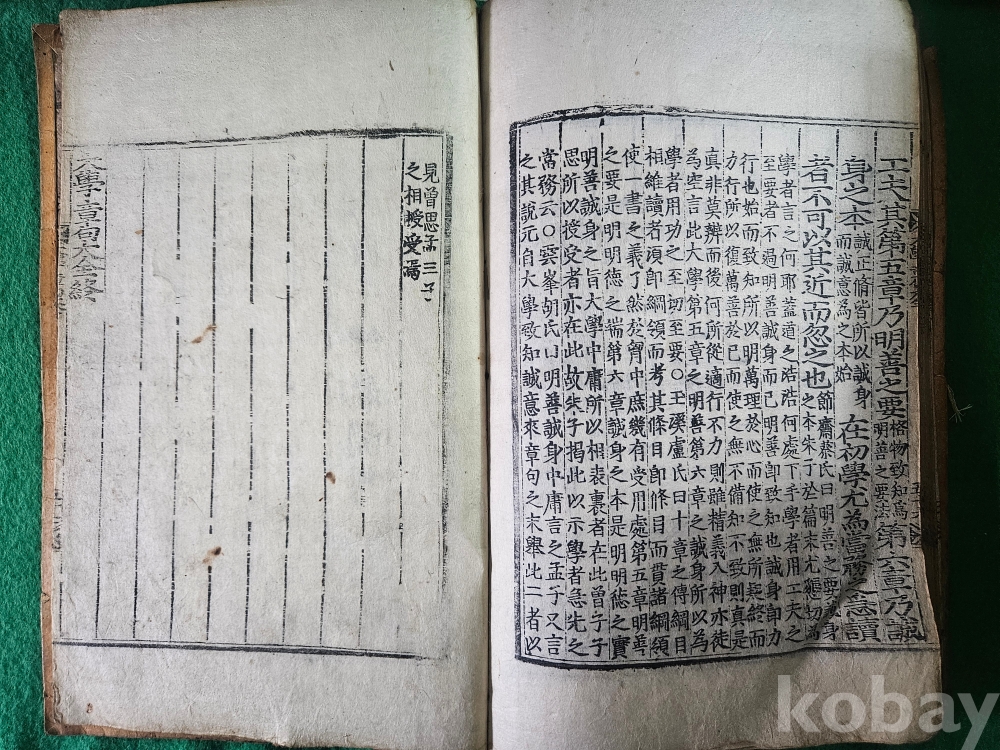 工夫其第五章乃明善之要格物致知爲明善之要法第六章乃誠
身之本誠正脩皆所以誠身而誠意爲之本始在初學尤爲當務之急讀
者不可以其近而忽之也節齋蔡氏曰明善之要誠身之本朱子於篇末尤懇切爲
學者言之何耶蓋道之浩浩何處下手學者用工夫之
至要者不過明善誠身而已明善卽致知也誠身卽力
行也始而致知所以明萬理於心而使之無所疑終而
力行所以復萬善於已而使之無不備知不致則真是
真非莫辨而後何所從適行不力則雖精義入神亦徒
爲空言此大學第五章之明善第六章之誠身所以爲
學者用功之至切至要○玉溪盧氏曰十章之傳綱目
相維讀者須卽綱領而考其條目卽條目而貫諸綱領
使一書之義了然於胷中庶幾有受用處第五章明善
之要是明明德之端第六章誠身之本是明明德之實
明善誠身之旨大學中庸所以相表裏者在此曾子子
思所以授受者亦在此故朱子揭此以示學者急先之
常務云○雲峯胡氏曰明善誠身中庸言之孟子又言
之其說元自大學致知誠意來章句之末舉此二者以
見曾思孟三子
之相授受焉
大學章句大全終
kobay